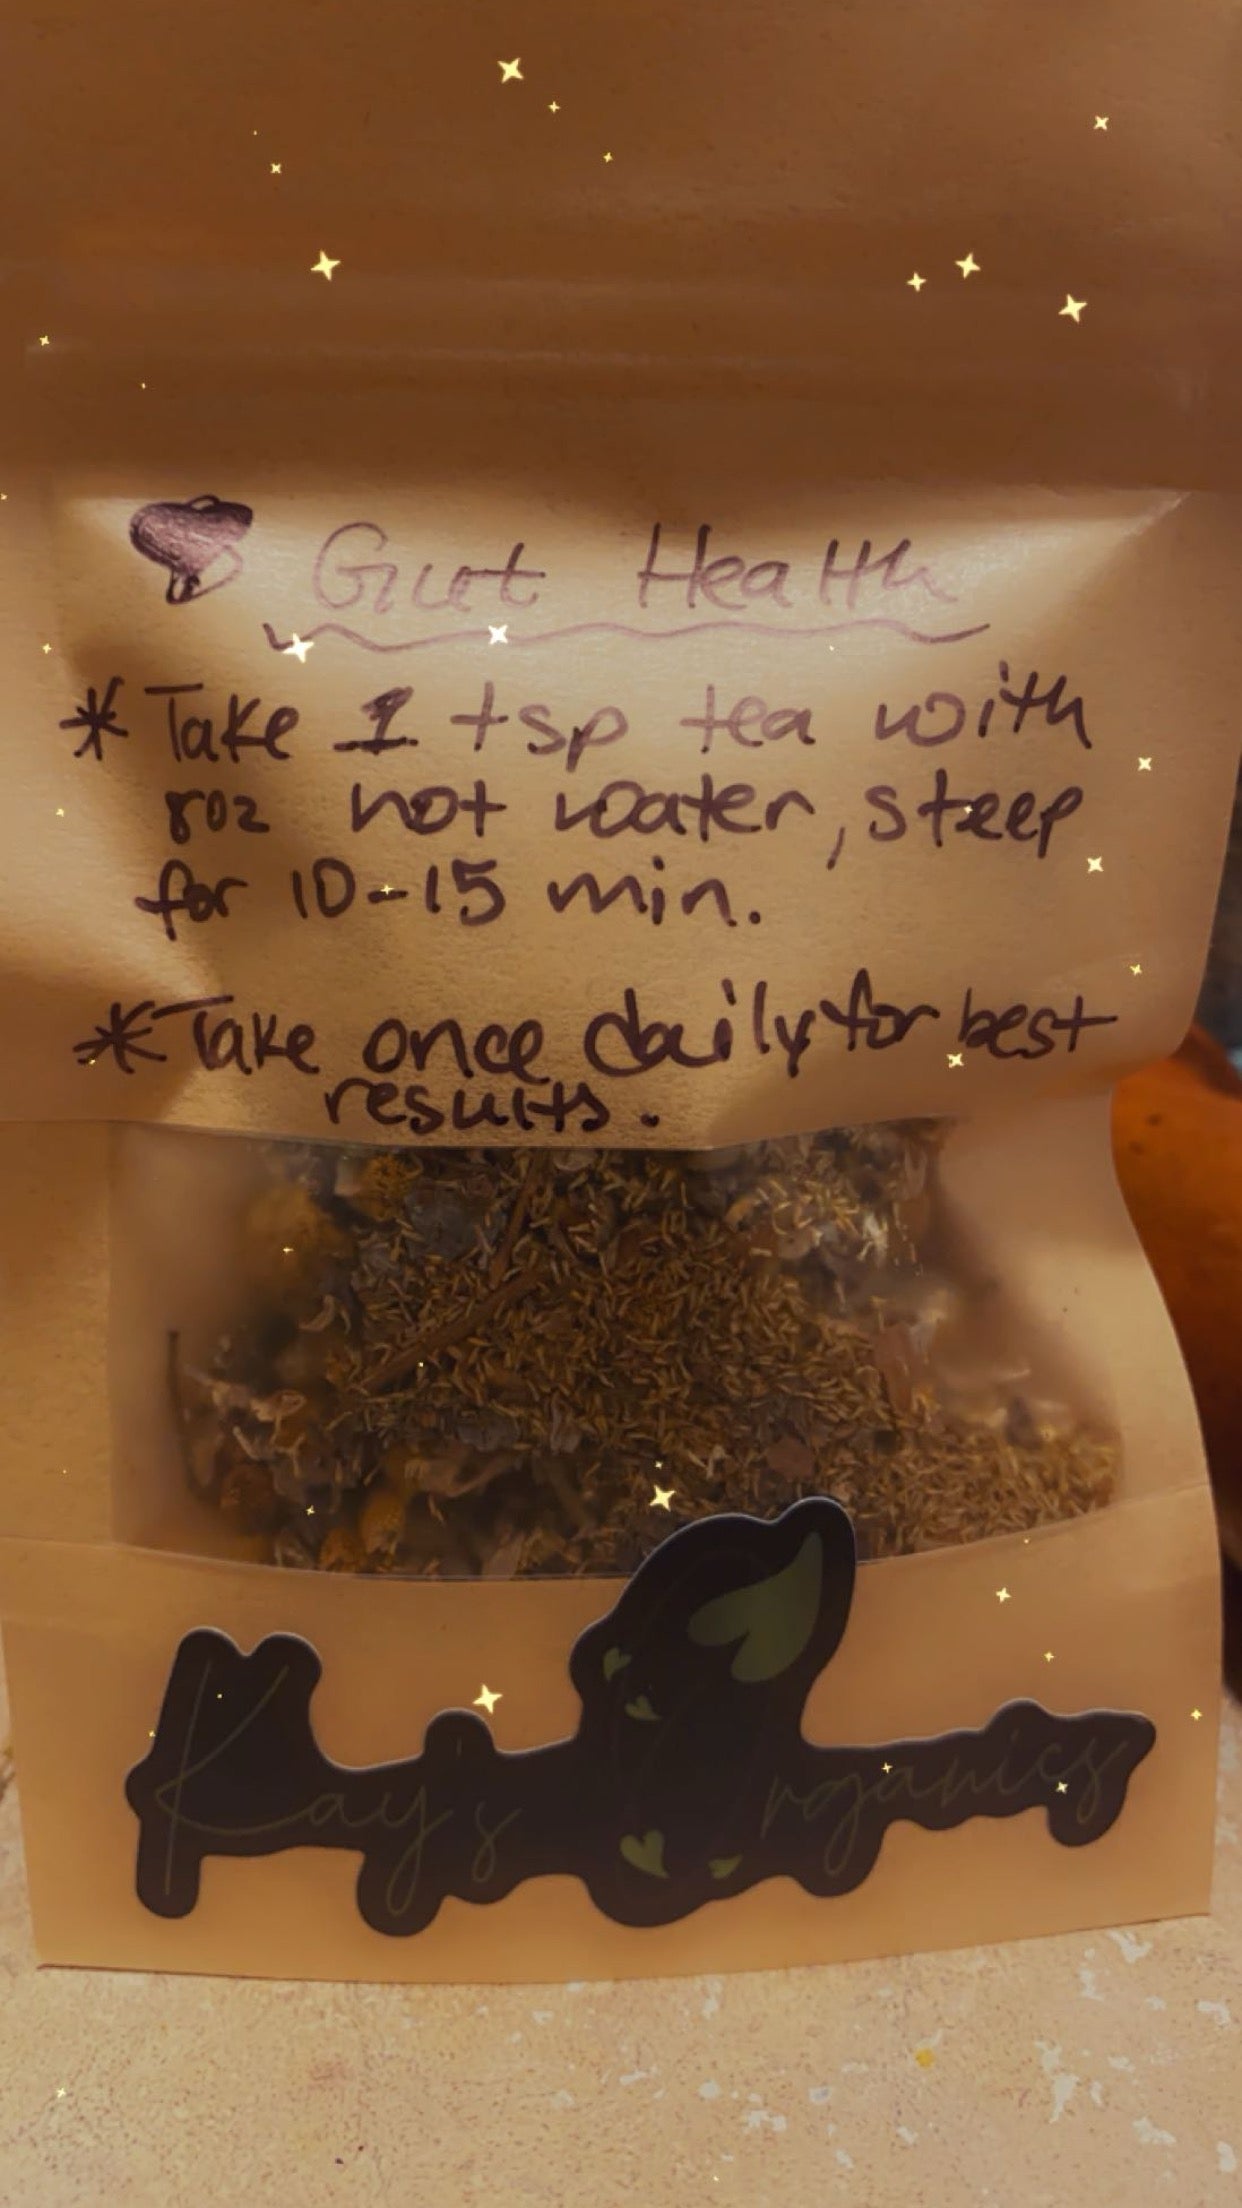 Gut Health
* Take 1 tsp tea with
8oz hot water, steep
for 10-15 min.
* Take once daily for best
results.
Kay's Organics